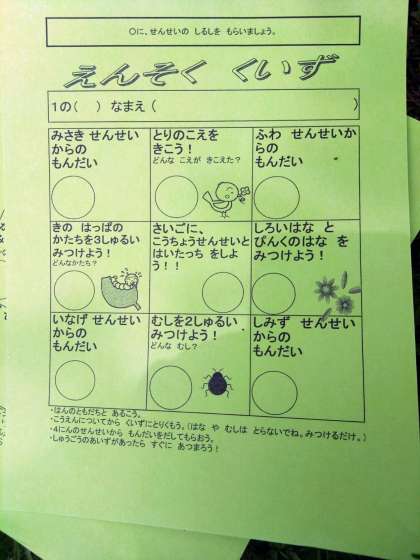 ○に、せんせいの しるしを もらいましょう。
えんそく くいず
1の( ) なまえ( )
みさき せんせい
からの
もんだい
とりのこえを
きこう!
どんな こえが きこえた?
ふわ せんせいか
らの
もんだい
きの はっぱの
かたちを3しゅるい
みつけよう!
どんなかたち?
さいごに、
こうちょうせんせいと
はいたっち をしよ
う!!
しろいはな と
ぴんくのはな を
みつけよう!
いなげ せんせい
からの
もんだい
むしを2しゅるい
みつけよう!
どんな むし?
しみず せんせい
からの
もんだい
・はんのともだちと あるこう。
・こうえんについてから くいずにとりくもう。(はな や むしは とらないでね。みつけるだけ。)
・4にんのせんせいから もんだいをだしてもらおう。
・しゅうごうのあいずがあったら すぐに あつまろう!